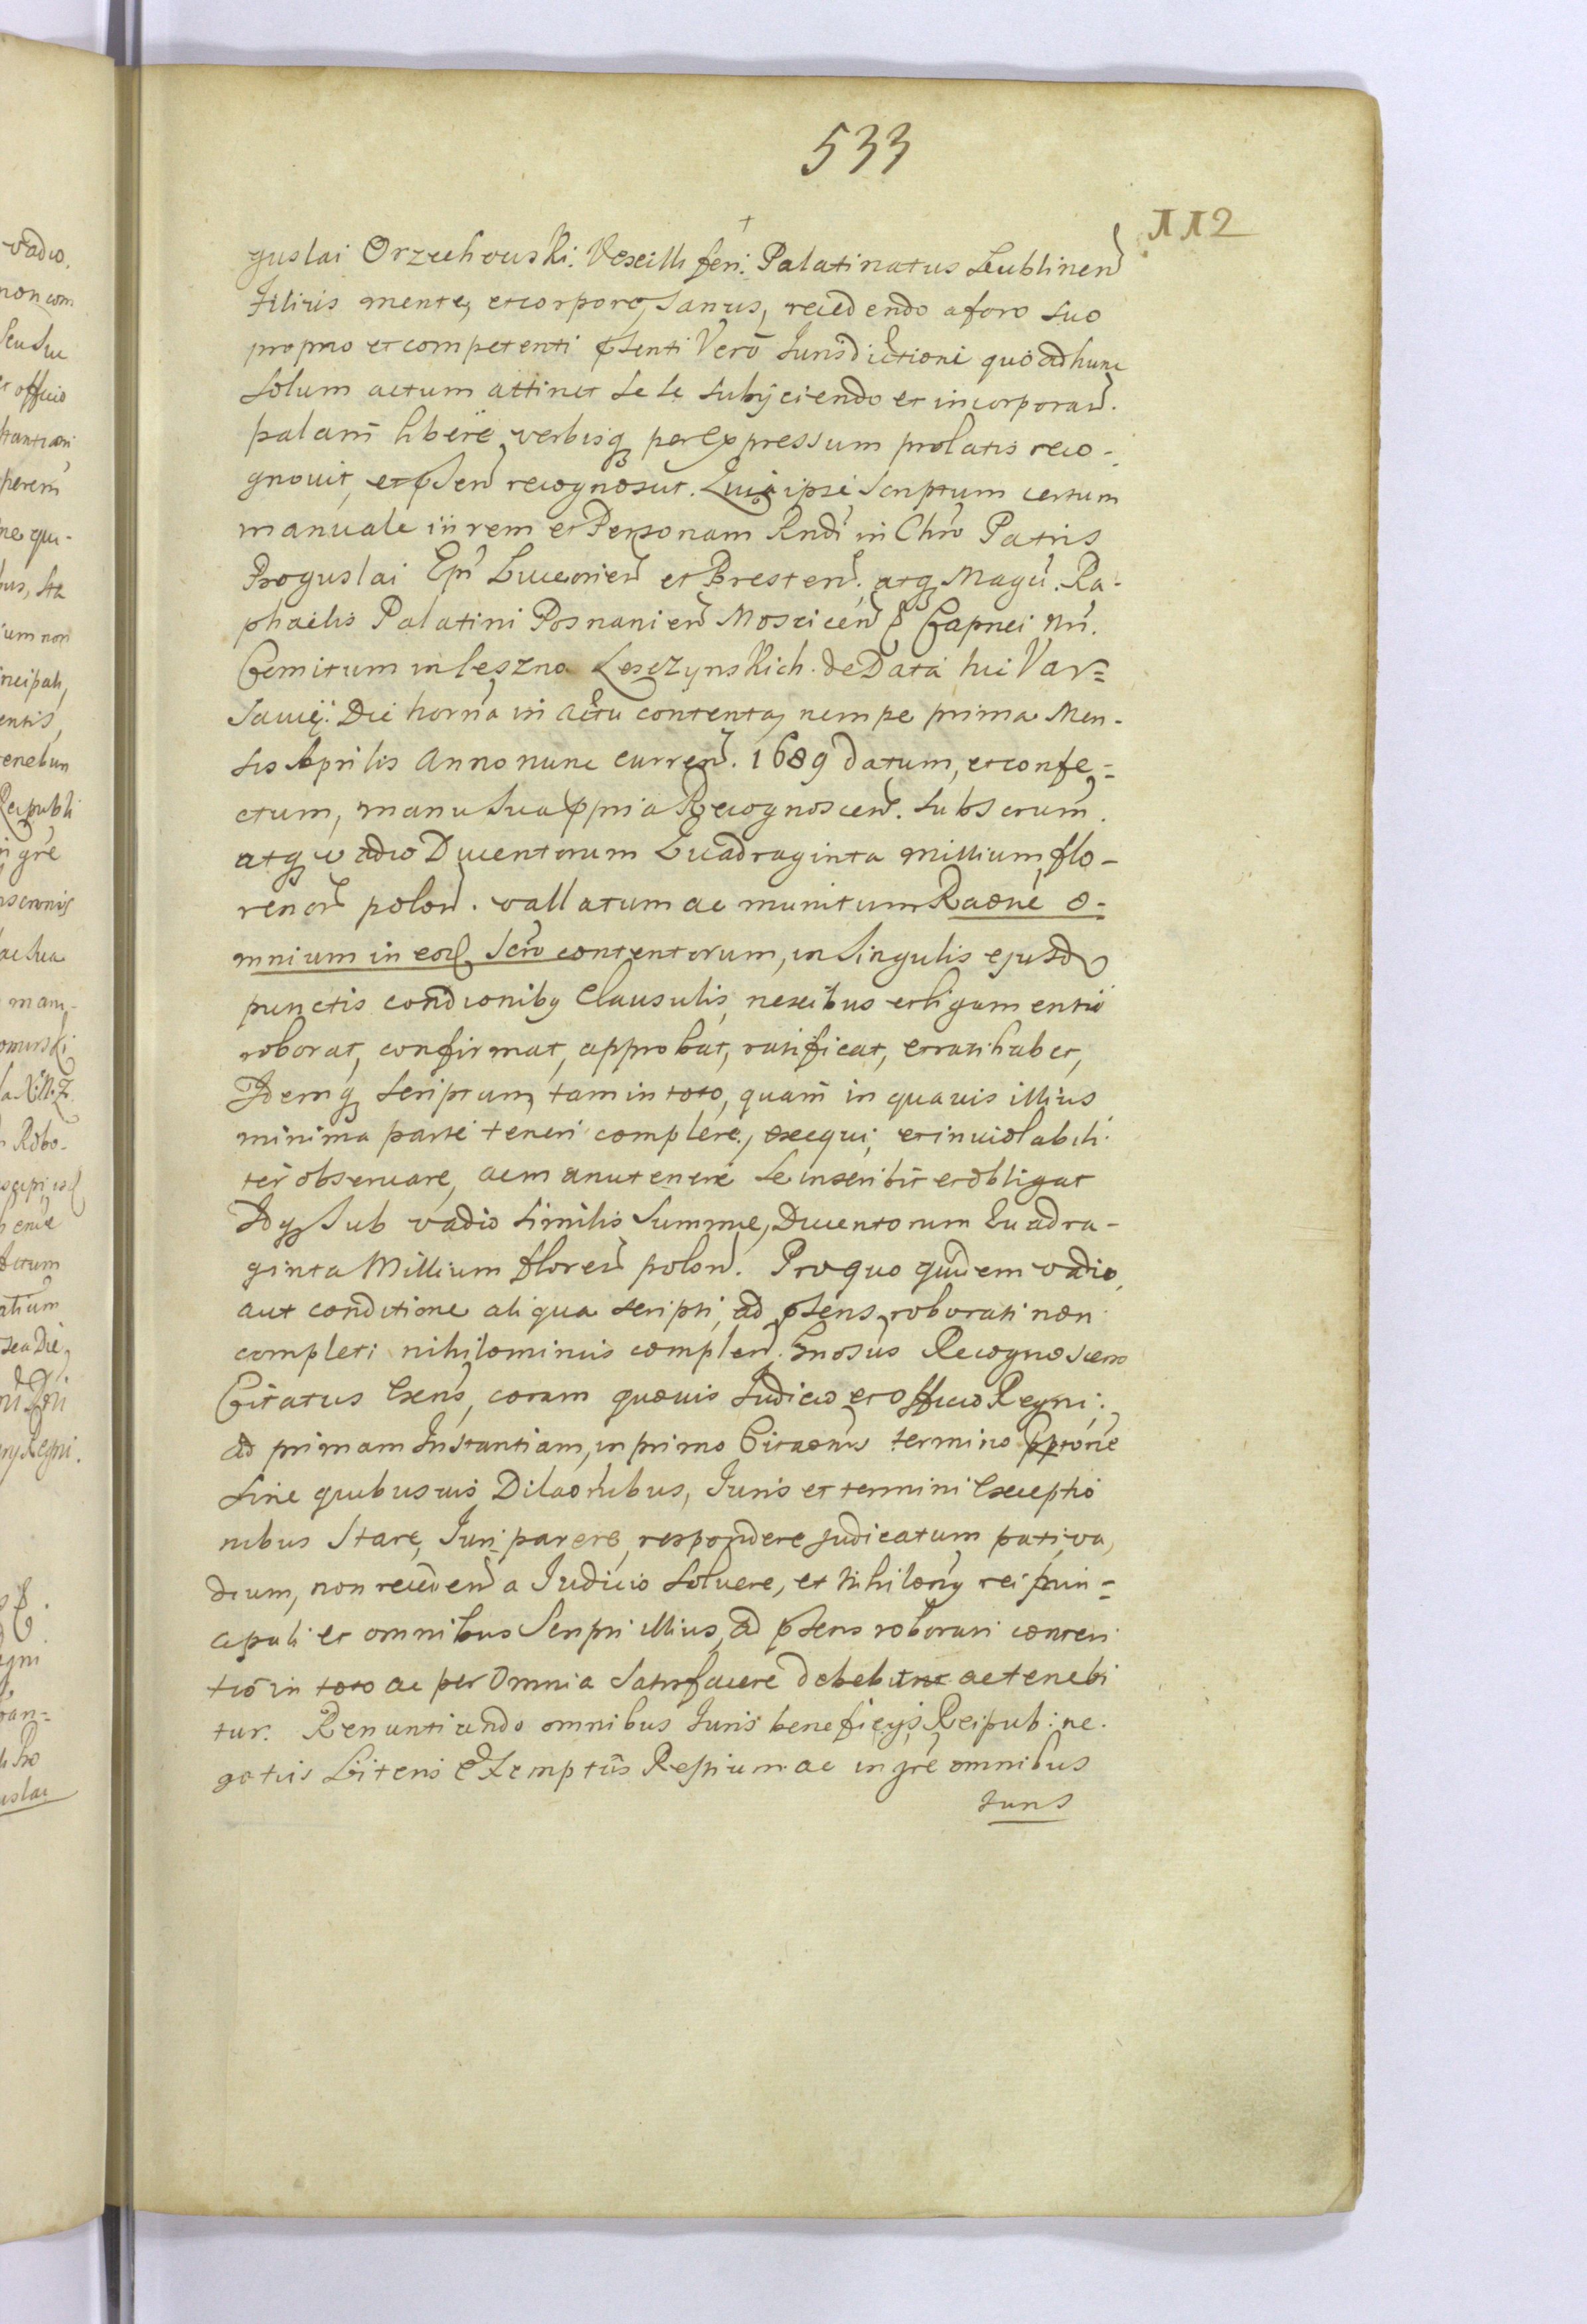 533
112
guslai Orzechouski. Vexilli feri. Palatinatus Lublinen
Filius mente, et corpore, sanus, recedendo a foro suo
proprio et competenti pñsenti Verõ Iurisdictioni quo ad hunc
solum actum attinet se se subijciendo et incorporan.
palam libere verbisq per expressum prolatis reco-
gnouit, et pñsen recognoscit. Quia ipse Scriptum certum
manuale in rem et Personam Rndi in Chro Patris
Boguslai Epi Luceorien et Bresten. atq Magci. Ra-
phaelis Palatini Posnanien Moscicen Capnei
Comitum in leszno Leszczynskich. de Data hic Var=
sauię. Die horna in actu contenta, nempe prima Men-
sis Aprilis Anno nunc curren. 1689 datum, et confe=
ctum, manu sua ppria Recognoscen. subscrum.
atq vadio Ducentorum Quadraginta millium flo-
renor polon. vallatum ac munitum Raõne o-
mnium in eod. Scro contentorum, in singulis ejusd
punctis condionibq clausulis, nexibus et ligamentis
roborat, confirmat, approbat, ratificat, et ratihabet,
Idemq scriptum, tam in toto, quam in quauis illius
minima parte teneri complere, exequi, et inuiolabili-
ter obseruare, ac manutenere se inscribit et obligat
Idq sub vadio similis summe, Ducentorum Quadra-
ginta Millium floren polon. Pro quo quidem vadio,
aut conditione aliqua scripti, ad pñsens, roborati non
completi nihilominus complen. Gnosus Recognoscens
Citatus exens, coram quouis Iudicio et Officio Regni.
ad primam Instantiam, in primo Citaonis termino pptorie
sine quibusuis Dilaonibus, Iuris et termini exceptio
nibus stare, Iuri parere, respondere judicatum pati, va,
dium, non receden a Iudicio soluere, et Nihilomq rei prin=
cipali et omnibus Scripti illius, ad pñsens roborari conten
tis in toto ac per Omnia satisfacere debebit ac tenebi
tur. Renuntiando omnibus Iuris beneficijs, Reipub: ne.
gotiis Literis exemptis Regiium ac in gre omnibus
Iuris